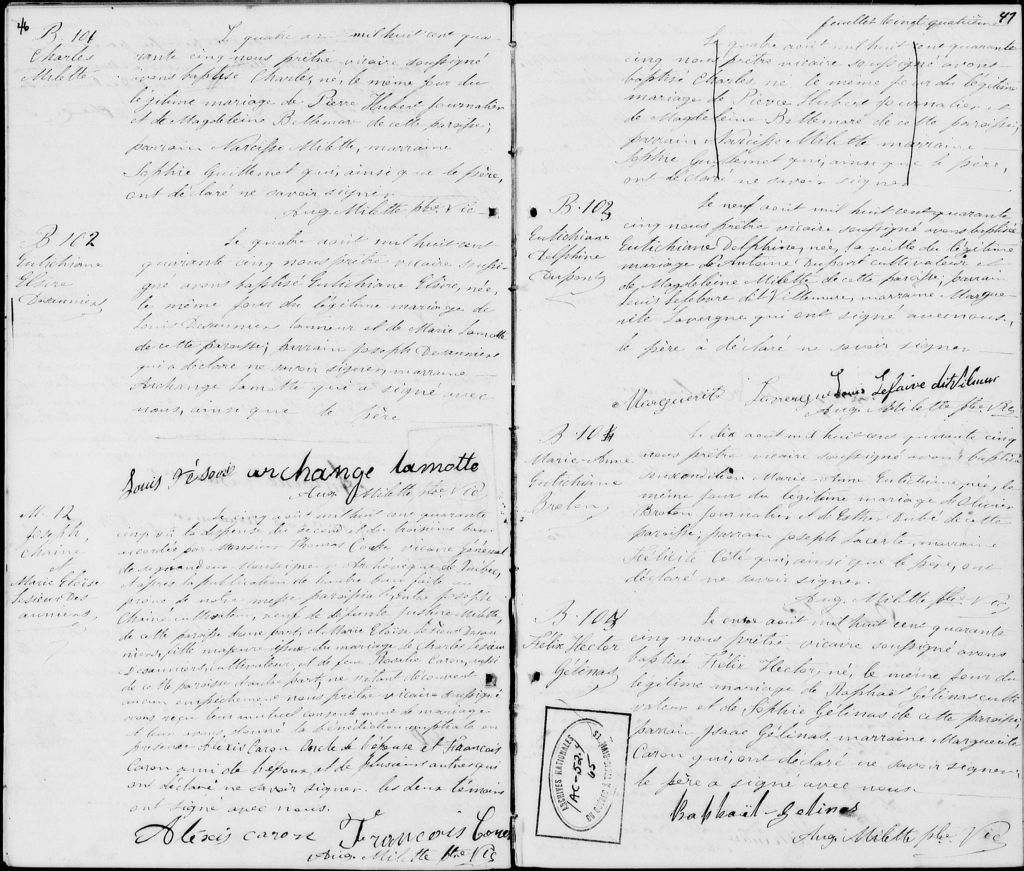 46
B. 101
Charles
Milette
Le quatre août mil huit cent qua-
rante cinq nous prêtre vicaire soussigné
avons baptisé Charles, né le même jour du
légitime mariage de Pierre Hubert journalier
et de Magdeleine Bettemare de cette paroisse;
parrain Narcisse Milette, marraine
Sophie Guillemet qui, ainsi que le père,
ont déclaré ne savoir signer.
Aug. Milette ptre Vic
B 102
Eutichiane
Elvire
Desaunier
Le quatre août mil huit cent
quarante cinq nous prêtre vicaire soussi-
gné avons baptisé Eutichiane Elvire, née,
le même jour du légitime mariage de
Louis Desaunier tanneur et de Marie Lamotte
de cette paroisse; parrain Joseph Desauniers
qui a déclaré ne savoir signer, marraine
Archange Lamotte qui a signé avec
nous, ainsi que le père
Louis archange lamotte
Aug. Milette ptre Vic
M. 12
Joseph
Chainé
et
Marie Eloïse
Lesieur Des
auniers
Le cinq août mil huit cent quarante
cinq vu la dispense du second et du troisième ban
accordée par Monsieur Thomas Cooke vicaire Général
de Monseigneur Archevêque de Québec,
et après la publication de l'autre ban faite au
prône de notre messe paroissiale entre Joseph
Chainé veuf de défunte Justine Milette,
de cette paroisse d'une part, et Marie Eloïse Lesieur Desau-
niers, fille majeure du mariage de Charles Lesieur
Desauniers, cultivateur, et de feue Rosalie Caron, aussi
de cette paroisse d'autre part; ne s'étant découvert
aucun empêchement nous prêtre vicaire soussigné
avons reçu leur mutuel consentement de mariage
et leur avons donné la bénédiction nuptiale en
présence Alexis Caron oncle de l'épouse et François
Caron ami de l'époux, et de plusieurs autres qui
ont déclaré ne savoir signer. les deux témoins
ont signé avec nous.
Alexis caron François Caron
Aug. Milette ptre Vic
feuillet vingt quatrième 47
Le quatre août mil huit cent quarante
cinq nous prêtre vicaire soussigné avons
baptisé Charles, né le même jour du légitime
mariage de Pierre Hubert journalier et
de Magdeleine Bettemare de cette paroisse;
parrain Narcisse Milette marraine
Sophie Guillemet qui, ainsi que le père,
ont déclaré ne savoir signer
B. 103
Eutichiane
Delphine
Dupont
Le neuf août mil huit cent quarante
cinq nous prêtre vicaire soussigné avons baptisé
Eutichiane Delphine, née, la veille du légitime
mariage de Antoine Dupont cultivateur et
de Magdeleine Milette de cette paroisse, parrain
Louis Lefebvre dit Villemure, marraine Margue-
rite Lavergne qui ont signé avec nous,
le père à déclaré ne savoir signer
Marguerite Lavergne Louis Lefaive dit Vilmur
Aug. Milette ptre Vic
B. 104
Marie-Anne
Eutichiane
Breton
Le dix août mil huit cent quarante cinq
nous prêtre vicaire soussigné avons baptisé
sous condition Marie-Anne Eutichiane, née, le
même jour du légitime mariage de Olivier
Breton journalier et de Esther Dubé de cette
paroisse; parrain Joseph Lacerte, marraine
Félicité Côté qui, ainsi que le père, ont
déclaré ne savoir signer.
Aug. Milette ptre Vic
B. 104
Félix Hector
Gélinas
Le onze août mil huit cent quarante
cinq nous prêtre vicaire soussigné avons
baptisé Félix Hector, né, le même jour du
légitime mariage de Raphaël Gélinas culti-
vateur et de Sophie Gélinas de cette paroisse;
parrain Isaac Gélinas, marraine Marguerite
Caron qui, ont déclaré ne savoir signer,
le père a signé avec nous.
Raphaël Gelinas
Aug. Milette ptre Vic
ARCHIVES NATIONALES
AC-52.4
65
DU QUÉBEC À TROIS-RIV